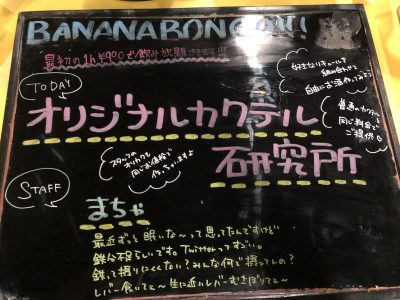 BANANABONGO!!!
最初の1h ¥990で飲み放題できます!!
TODAY
好きなリキュールを
組み合わせて
自由にお酒作ってみよう
オリジナルカクテル
普通のカクテルと
同じ料金で
ご提供し
スタッフの
オリカクも
同じお値段で
作っちゃいますよ
研究所
STAFF
まちゃ
最近ずっと眠いな〜って思ってたんですけど
鉄分不足らしいです。Twitterってすごい。
鉄って摂りにくくない?みんな何で摂ってんの?
レバー食いてぇ〜生に近いレバーむさぼりてぇ〜